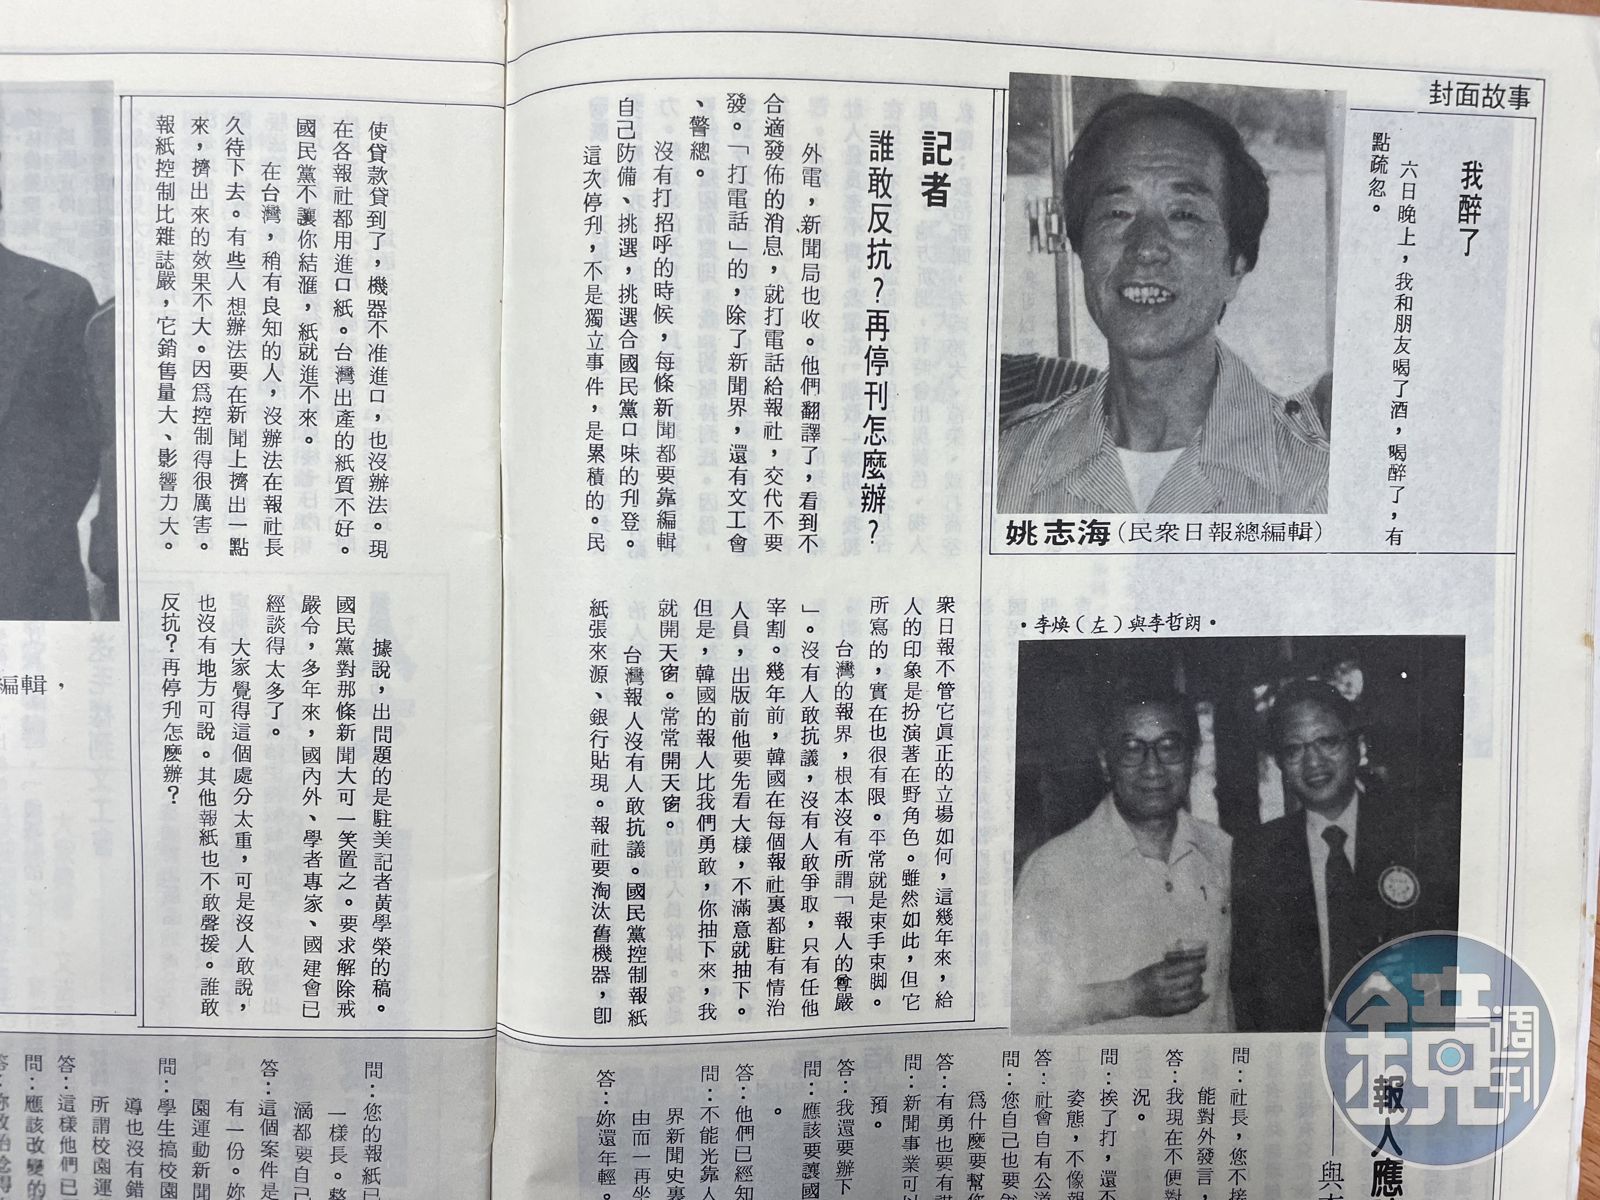 封面故事
我醉了
六日晚上，我和朋友喝了酒，喝醉了，有
點疏忽。
姚志海（民衆日報總編輯）
・李煥（左）與李哲朗・
記者
誰敢反抗？再停刋怎麼辦？
外電，新聞局也收。他們翻譯了，看到不
合適發佈的消息，就打電話給報社，交代不要
發。「打電話」的，除了新聞界，還有文工會
、警總。
沒有打招呼的時候，每條新聞都要靠編輯
自己防備、挑選，挑選合國民黨口味的刋登。
這次停刋，不是獨立事件，是累積的。民
衆日報不管它眞正的立場如何，這幾年來，給
人的印象是扮演著在野角色。雖然如此，但它
所寫的，實在也很有限。平常就是束手束脚。
台灣的報界，根本沒有所謂「報人的尊嚴
」。沒有人敢抗議，沒有人敢爭取，只有任他
宰割。幾年前，韓國在每個報社裏都駐有情治
人員，出版前他要先看大樣，不滿意就抽下。
但是，韓國的報人比我們勇敢，你抽下來，我
就開天窗。常常開天窗。
台灣報人沒有人敢抗議。國民黨控制報紙
紙張來源、銀行貼現。報社要淘汰舊機器，卽
使貸款貸到了，機器不准進口，也沒辦法。現
在各報社都用進口紙。台灣出產的紙質不好。
國民黨不讓你結滙，紙就進不來。
在台灣，稍有良知的人，沒辦法在報社長
久待下去。有些人想辦法要在新聞上擠出一點
來，擠出來的效果不大。因爲控制得很厲害。
報紙控制比雜誌嚴，它銷售量大、影響力大。
據說，出問題的是駐美記者黃學榮的稿。
國民黨對那條新聞大可一笑置之。要求解除戒
嚴令，多年來，國內外、學者專家、國建會已
經談得太多了。
大家覺得這個處分太重，可是沒人敢說，
也沒有地方可說。其他報紙也不敢聲援。誰敢
反抗？再停刋怎麼辦？
編輯，
報人應
──與
問：社長，您不接
能對外發言，
答：我現在不便對
況。
問：挨了打，還不
姿態，不像報
答：社會自有公道
問：您自己也要
爲什麼要幫你
答：有勇也要有謀
問：新聞事業可以
預。
答：我還要辦下
問：應該要讓國
。
答：他們已經知
問：不能光靠人
界新聞史裏
由而一再坐
答：妳還年輕。
問：您的報紙已
一樣長。整
滿都要自己
答：這個案件是
有一份。妳
園運動新聞
問：學生搞校園
導也沒有錯
所謂校園運
答：這樣他們已
問：應該改變的
鏡週刊